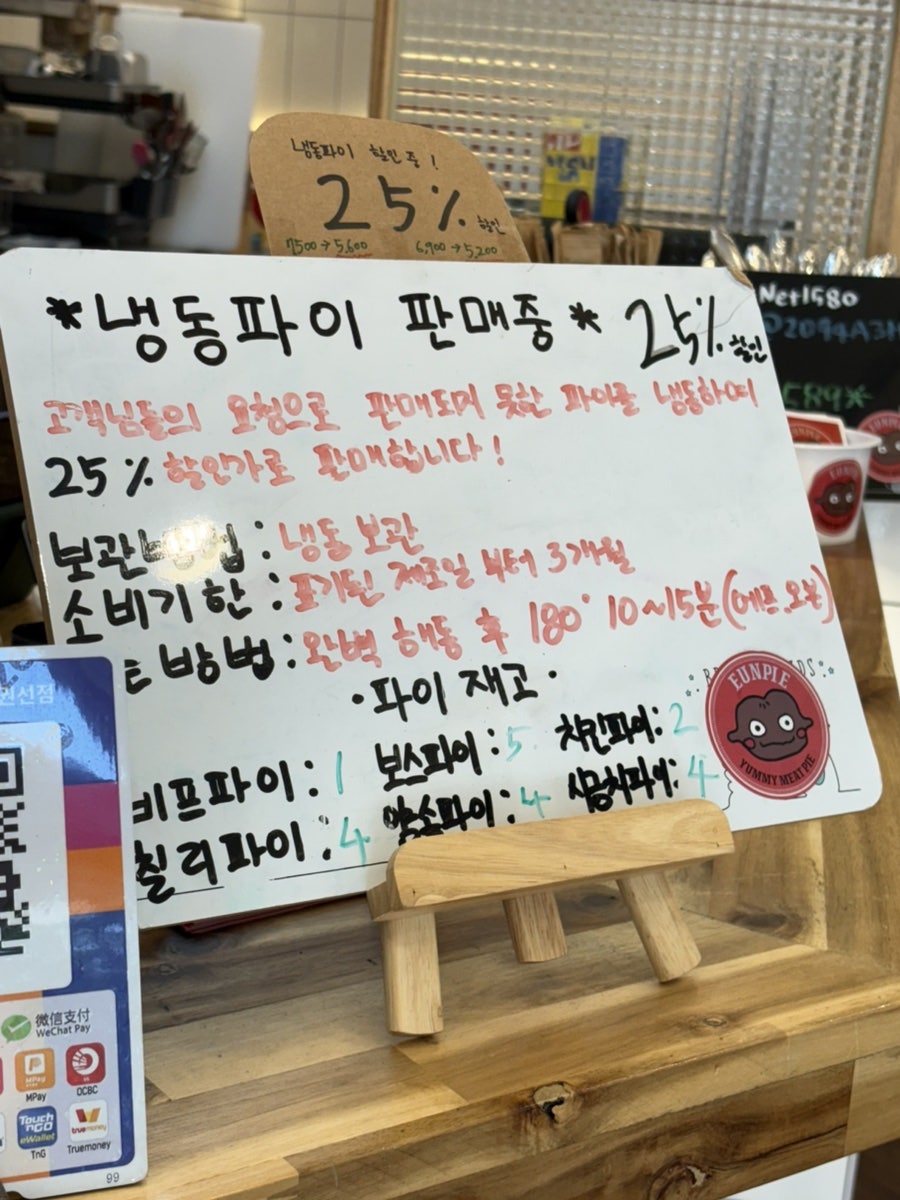 냉동파이 할인 중!
25% 할인
7500→5,600 6,900→5,200
*냉동파이 판매중* 25% 할인
고객님들의 요청으로 판매되지 못한 파이를 냉동하여
25% 할인가로 판매합니다!
보관방법: 냉동 보관
소비기한: 표기된 제조일 부터 3개월
방법: 완벽 해동 후 180° 10~15분(에프.오븐)
·파이 재고·
비프파이: 1 보스파이: 5 치킨파이: 2
칠리파이: 4 4 4
EUNPIE
YUMMY MEAT PIE
Net1580
589*
EUNPIE
微信支付
WeChat Pay
MPay
OCBC
Touch 'n GO eWallet
TnG
truemoney
Truemoney
99